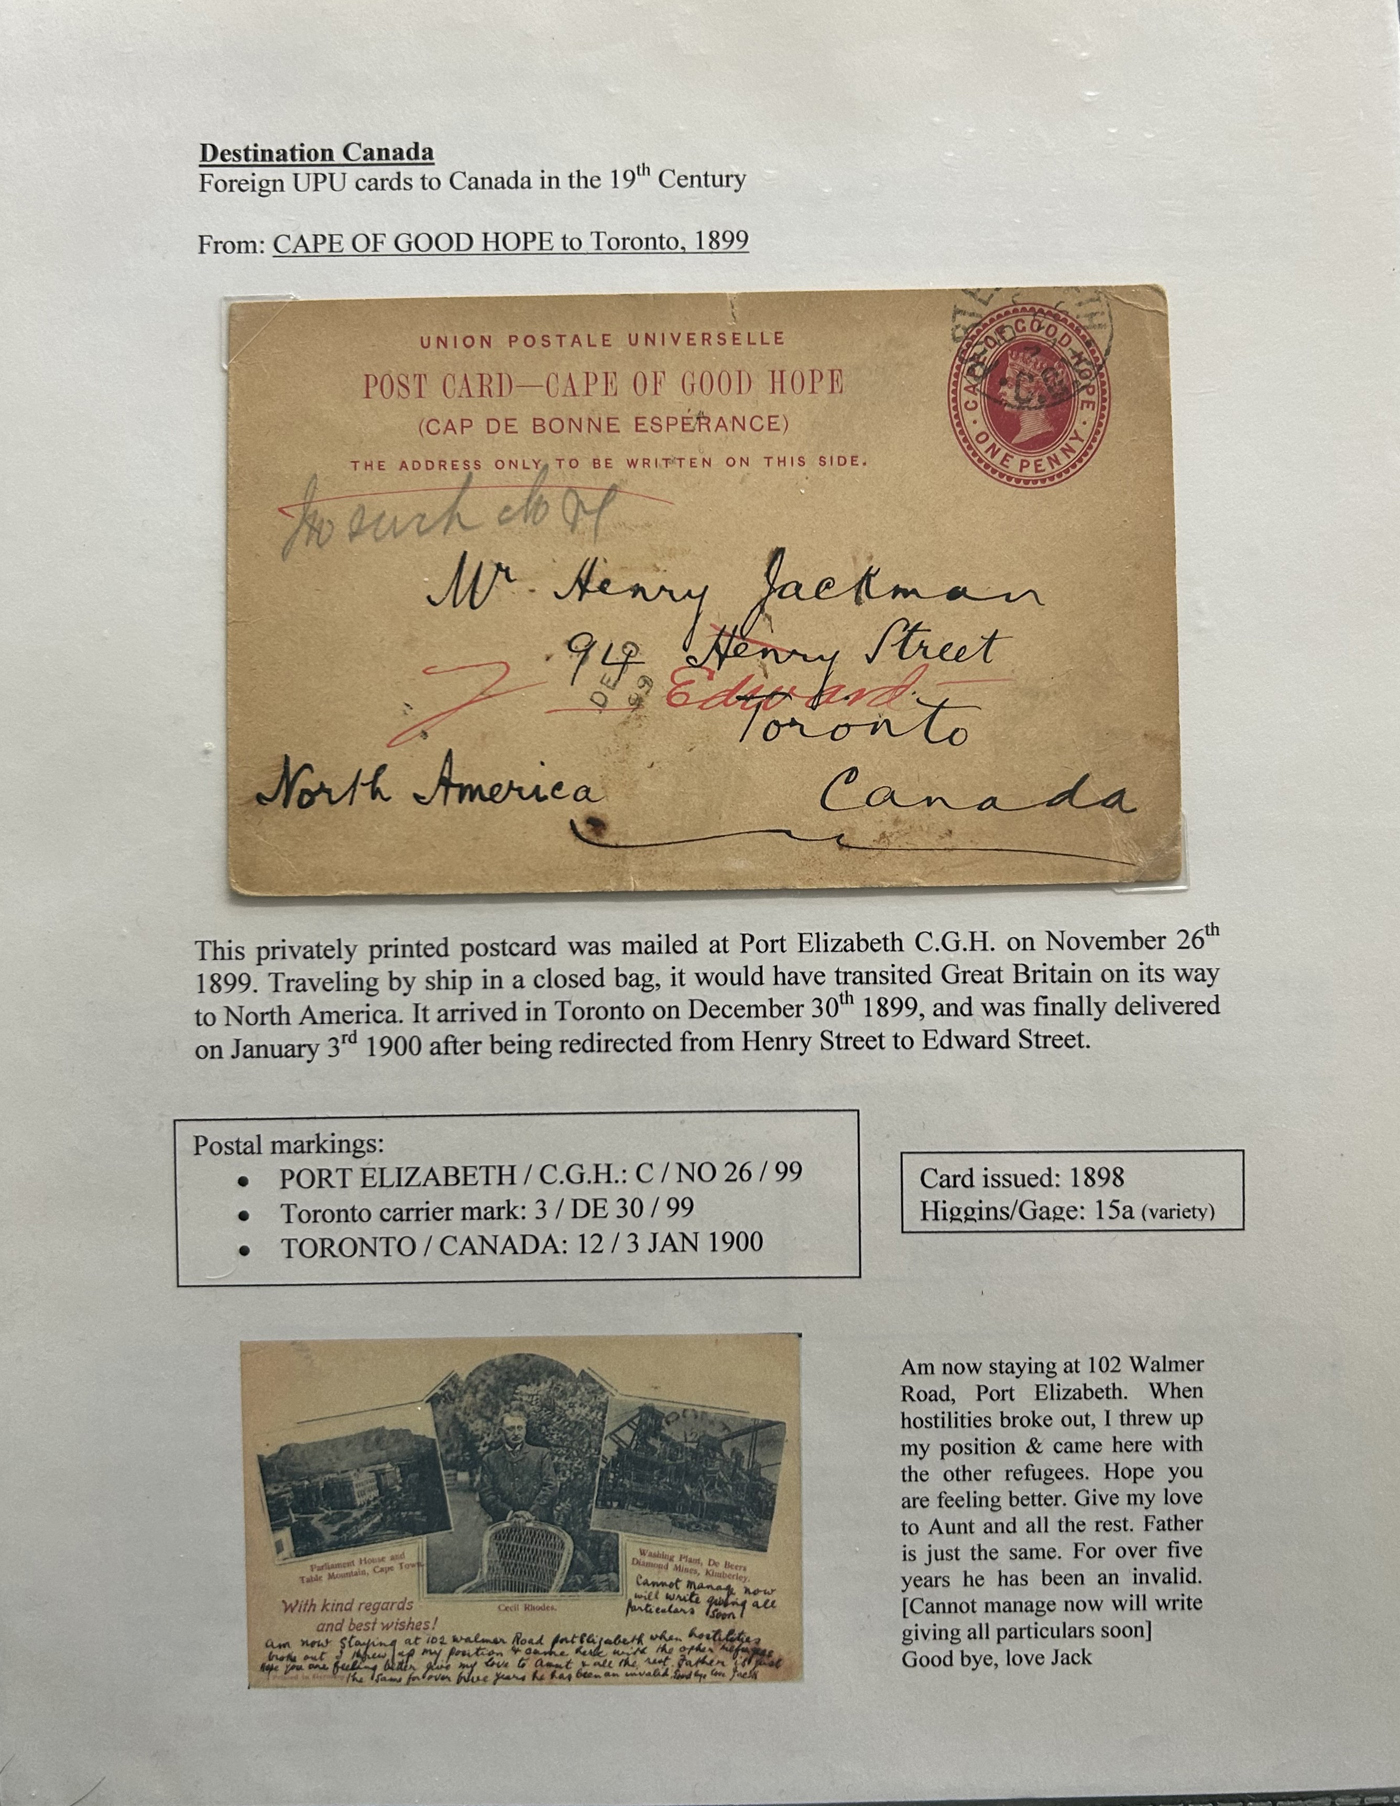 Destination Canada
Foreign UPU cards to Canada in the 19th Century
From: CAPE OF GOOD HOPE to Toronto, 1899
UNION POSTALE UNIVERSELLE
POST CARD—CAPE OF GOOD HOPE
(CAP DE BONNE ESPÉRANCE)
THE ADDRESS ONLY TO BE WRITTEN ON THIS SIDE.
CAPE OF GOOD HOPE
ONE PENNY
No such No
Mr. Henry Jackman
94 Henry Street
Edward
DE 30
99
Toronto
North America Canada
This privately printed postcard was mailed at Port Elizabeth C.G.H. on November 26th
1899. Traveling by ship in a closed bag, it would have transited Great Britain on its way
to North America. It arrived in Toronto on December 30th 1899, and was finally delivered
on January 3rd 1900 after being redirected from Henry Street to Edward Street.
Postal markings:
• PORT ELIZABETH / C.G.H.: C / NO 26 / 99
• Toronto carrier mark: 3 / DE 30 / 99
• TORONTO / CANADA: 12 / 3 JAN 1900
Card issued: 1898
Higgins/Gage: 15a (variety)
Parliament House and
Table Mountain, Cape Town.
Cecil Rhodes.
Washing Plant, De Beers
Diamond Mines, Kimberley.
With kind regards
and best wishes!
Cannot manage now
will write giving all
particulars soon
am now staying at 102 Walmer Road Port Elizabeth when hostilities
broke out I threw up my position & came here with the other refugees
hope you are feeling better give my love to Aunt & all the rest. Father is just
the same for over five years he has been an invalid Good bye love Jack
Am now staying at 102 Walmer
Road, Port Elizabeth. When
hostilities broke out, I threw up
my position & came here with
the other refugees. Hope you
are feeling better. Give my love
to Aunt and all the rest. Father
is just the same. For over five
years he has been an invalid.
[Cannot manage now will write
giving all particulars soon]
Good bye, love Jack